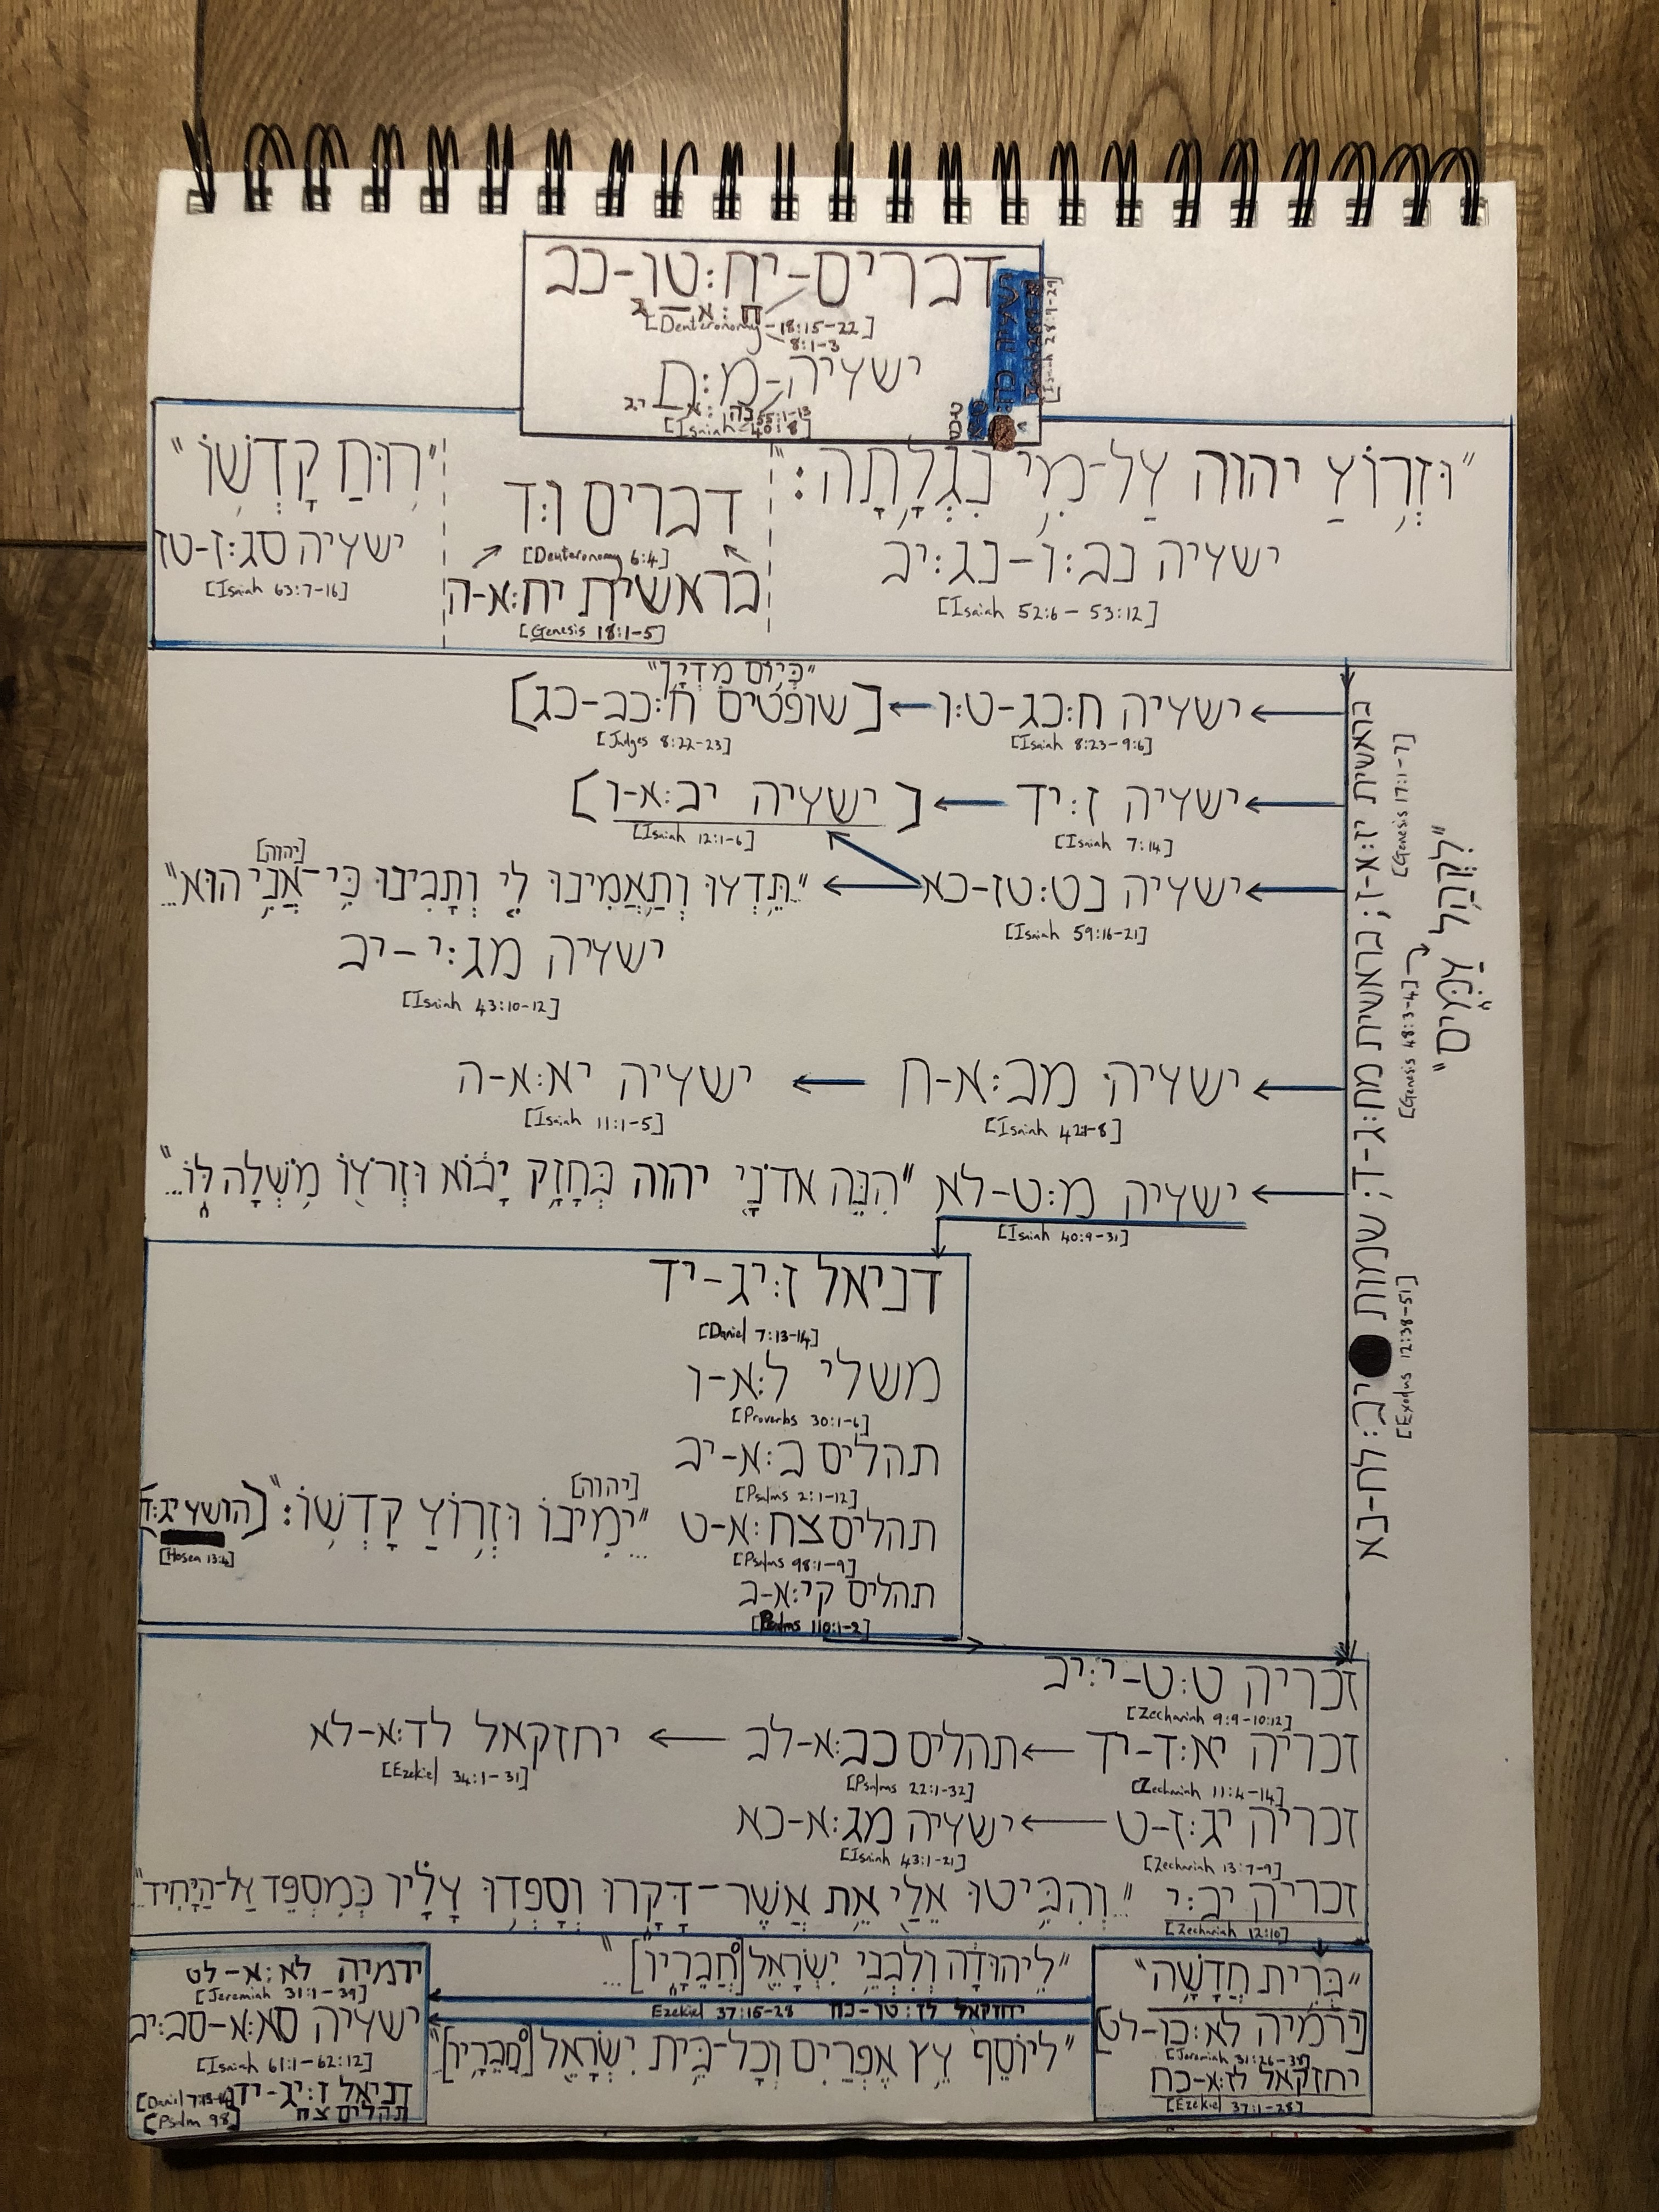 דברים-יח:טו-כב
ח:א-ג
[Deuteronomy-18:15-22]
8:1-3
ישעיה-מ:ח
נה:א-יג
55:1-13
[Isaiah 40:8]
[Isaiah 28:9-29]
"וּזְרוֹעַ יהוה עַל-מִי נִגְלָתָה:"
ישעיה נב:ו-נג:יב
[Isaiah 52:6-53:12]
דברים ו:ד
[Deuteronomy 6:4]
בראשית יח:א-ה
[Genesis 18:1-5]
"רוּחַ קָדְשׁוֹ"
ישעיה סג:ז-טז
[Isaiah 63:7-16]
"כְּיוֹם מִדְיָן"
ישעיה ח:כג-ט:ו ← [שופטים ח:כב-כג]
[Isaiah 8:23-9:6]
[Judges 8:22-23]
ישעיה ז:יד ← [ישעיה יב:א-ו]
[Isaiah 7:14]
[Isaiah 12:1-6]
[יהוה]
ישעיה נט:טז-כא ← "...תֵּדְעוּ וְתַאֲמִינוּ לִי וְתָבִינוּ כִּי-אֲנִי הוּא..."
[Isaiah 59:16-21]
ישעיה מג:י-יב
[Isaiah 43:10-12]
ישעיה מב:א-ח ← ישעיה יא:א-ה
[Isaiah 42:1-8]
[Isaiah 11:1-5]
ישעיה מ:ט-לא "הִנֵּה אדֹנָי יהוה בְּחָזָק יָבוֹא וּזְרֹעוֹ מֹשְׁלָה לוֹ..."
[Isaiah 40:9-31]
בראשית יז:א-ז; בראשית מח:ג-ד; שמות יב:לח-נא
[Genesis 17:1-7]
[Genesis 48:3-4]
[Exodus 12:38-51]
"לִקְהַל עַמִּים"
דניאל ז:יג-יד
[Daniel 7:13-14]
משלי ל:א-ו
[Proverbs 30:1-6]
תהלים ב:א-יב
[Psalms 2:1-12]
[יהוה]
תהלים צח:א-ט "...יְמִינוֹ וּזְרוֹעַ קָדְשׁוֹ:" [הושע יג:ד]
[Psalms 98:1-9]
[Hosea 13:4]
תהלים קי:א-ב
[Psalms 110:1-2]
זכריה ט:ט-י:יב
[Zechariah 9:9-10:12]
זכריה יא:ד-יד ← תהלים כב:א-לב ← יחזקאל לד:א-לא
[Zechariah 11:4-14]
[Psalms 22:1-32]
[Ezekiel 34:1-31]
זכריה יג:ז-ט ← ישעיה מג:א-כא
[Zechariah 13:7-9]
[Isaiah 43:1-21]
זכריה יב:י "...וְהִבִּיטוּ אֵלַי אֵת אֲשֶׁר-דָּקָרוּ וְסָפְדוּ עָלָיו כְּמִסְפֵּד עַל-הַיָּחִיד..."
[Zechariah 12:10]
"בְּרִית חֲדָשָׁה"
[ירמיה לא:כו-לט]
[Jeremiah 31:26-39]
יחזקאל לז:א-כח
[Ezekiel 37:1-28]
"לִיהוּדָה וְלִבְנֵי יִשְׂרָאֵל [חֲבֵרָיו]..."
יחזקאל לז:טו-כח Ezekiel 37:15-28
"לְיוֹסֵף עֵץ אֶפְרַיִם וְכָל-בֵּית יִשְׂרָאֵל [חֲבֵרָיו]"
ירמיה לא:א-לט
[Jeremiah 31:1-39]
ישעיה סא:א-סב:יב
[Isaiah 61:1-62:12]
דניאל ז:יג-יד
[Daniel 7:13-14]
תהלים צח
[Psalm 98]